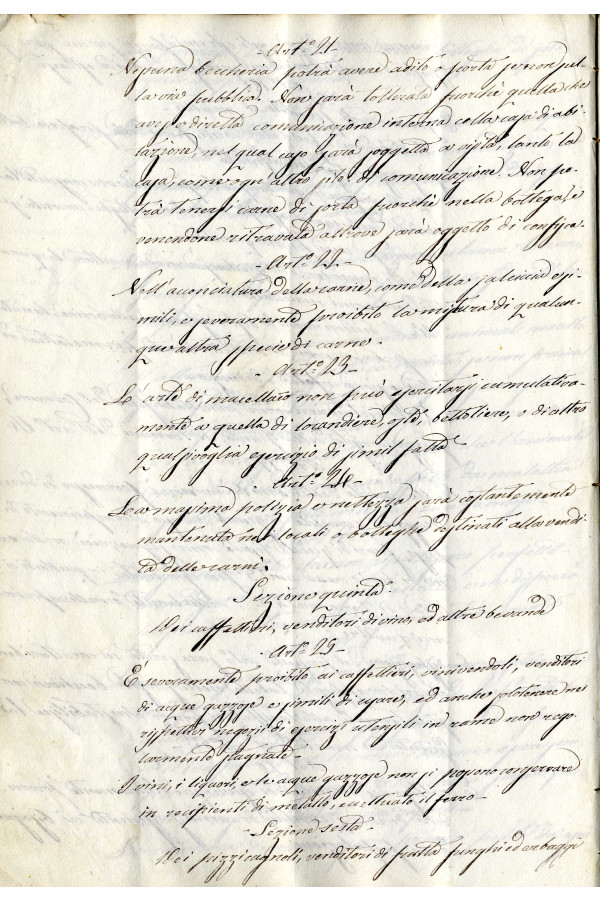 Art.º 21.
Nessuna beccheria potrà avere adito o porta se non nel
la via pubblica. Non sarà tollerata fuorchè quella che
avesse diretta comunicazione interna colla casa di abi
tazione, nel qual caso sarà soggetta a visita, tanto la
casa, come ogni altro sito di comunicazione. Non po-
trà tenersi carne di sorta fuorchè nella bottega, e
venendone ritrovata altrove sarà oggetto di confisca.
Art.º 22.
Nell'acconciatura della carne, come della salsiccia e si
mili, è severamente proibito la mistura di qualun-
que altra specie di carne.
Art.º 23
L'arte di macellaro non può esercitarsi cumulativa-
mente a quella di locandiere, oste, bettoliere, o di altro
qualsivoglia esercizio di simil fatta.
Art.º 24
La massima polizia e nettezza sarà costantemente
mantenuta nei locali o botteghe destinati alla vendi-
ta delle carni.
Sezione quinta.
Dei caffettieri, venditori di vino, ed altre bevande
Art.º 25
È severamente proibito ai caffettieri, vinivendoli, venditori
di acque gazzose e simili di usare, ed anche solo tenere nei
rispettivi negozi di esercizi utensili in rame non rego
larmente stagnate.
I vini, i liquori, e le acque gazzose non si possono conservare
in recipienti di metallo, eccettuato il ferro.
Sezione sesta.
Dei pizzicagnoli, venditori di frutta funghi ed erbaggi